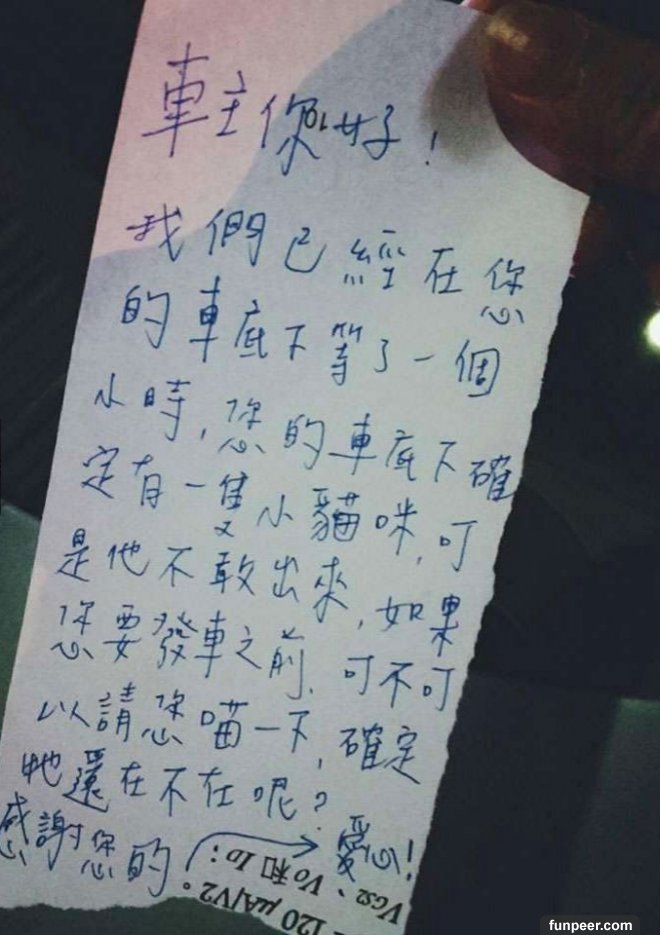 車主你好!
我們已經在您
的車底下等了一個
小時,您的車底下確
定有一隻小貓咪,可
是他不敢出來,如果
您要發車之前,可不可
以請您喵一下,確定
牠還在不在呢?
感謝您的 → 愛心!
VGS2、VO和IO:
120 μA/V2。
funpeer.com